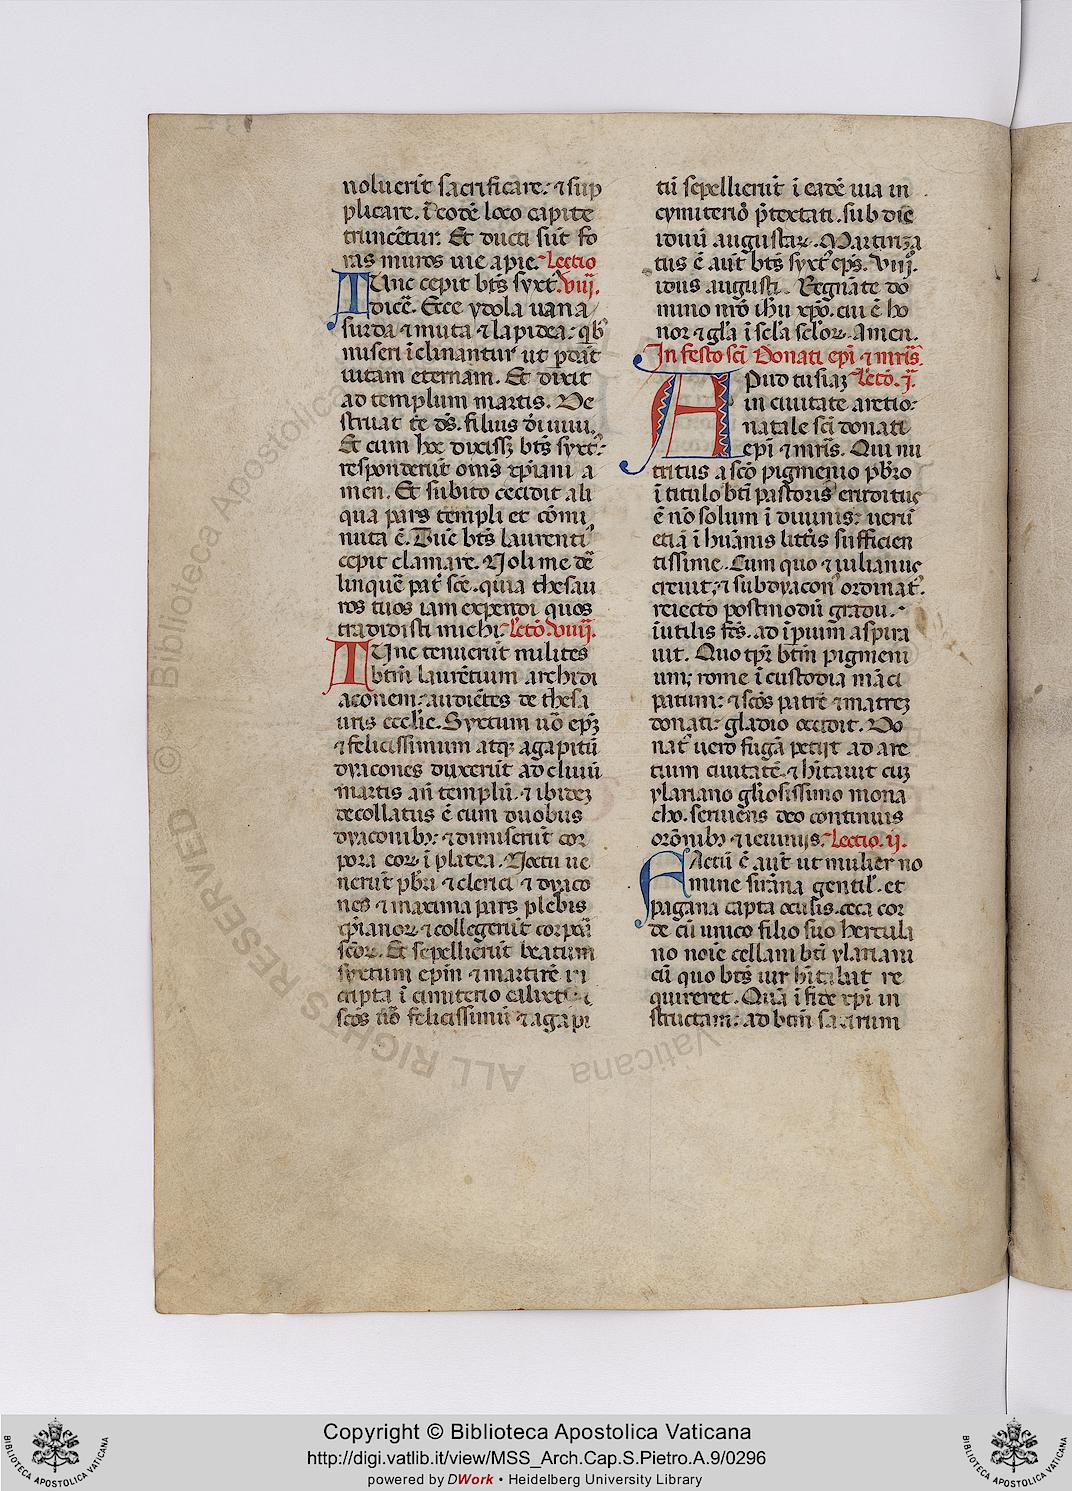 noluerīt sacrificare: ⁊ sup
plicare. ī eodē loco capite
truncētur. Et ducti sūt fo
ras muros uie apie. Lectio
TUnc cepit bt̄s syxt᷒ .viij.
dicē. Ecce ydola uana
surda ⁊ muta ⁊ lapidea: qb᷒
miseri īclinantur ut pdāt
uitam eternam. Et dixit
ad templum martis. De
struat te ds̄. filius di uiui.
Et cum hec dixissꝫ bt̄s syxt᷒:
responderūt om̄s xp̄iani a
men. Et subito cecidit ali
qua pars templi et cōmi
nuta ē. Tūc bt̄s laurenti᷒
cepit clamare. Noli me de
linquē pat̄ scē. quia thesau
ros tuos iam expendi quos
tradidisti michi. Lectō. viiij.
TUnc tenuerūt milites
bt̄m laurētium archidi
aconem: audiētes de thesa
uris eccl̄ie. Syxtum u̇o ep̄ꝫ
⁊ felicissimum atqꝫ agapitū
dyacones duxerūt ad cliuū
martis an̄ templū. ⁊ ibideꝫ
decollatus ē cum duobus
dyaconibꝫ: ⁊ dimiserūt cor
pora eoꝝ ī platea. Noctu ue
nerūt pb̄ri ⁊ clerici ⁊ dyaco
nes ⁊ maxima pars plebis
xp̄ianoꝝ ⁊ collegerūt corpora
scōꝝ. Et sepellierūt beatum
syxtum ep̄m ⁊ martirē in
cripta ī cimiterio calixti:
scōs u̇o felicissimū ⁊ agapi
tū sepellierūt ī eadē uia in
cymiterio p̄textati. sub die
iduū augustaꝝ. Martiriza
tus ē aūt bt̄s syxt᷒ ep̄s. viij.
idus augusti. Regnāte do
mino nr̄o ih̄u xp̄o. cui ē ho
nor ⁊ gl̄a ī scl̄a scl̄oꝝ. Amen.
In festo scī Donati ep̄i ⁊ mr̄is.
APud tusiaꝫ Lectō. j.
in ciuitate aretio:
natale scī donati
ep̄i ⁊ mr̄is. Qui nu
tritus a scō pigmenio pb̄ro
ī titulo bt̄i pastoris eruditus
ē nō solum ī diuinis: uerū
etiā ī hūanis litt̄is sufficien
tissime. Cum quo ⁊ iulianus
creuit: ⁊ subdyacon᷒ ordinat᷒.
reiecto postmodū gradu.
īutilis fc̄s. ad īpium aspira
uit. Quo tp̄r bt̄m pigmeni
um; rome ī custodia māci
patum: ⁊ scōs patrē ⁊ matreꝫ
donati: gladio occidit. Do
nat᷒ uero fugā petijt ad are
tium ciuitatē ⁊ hītauit cuꝫ
ylariano gl̄iosissimo mona
cho. seruiens deo continuis
orōnibꝫ ⁊ ieiunijs. Lectio. ij.
FActū ē aūt ut mulier no
mine sirāna gentil᷒. et
pagana capta oculis. ceca cor
de cū unico filio suo hercula
no noīe cellam bt̄i ylariani
cū quo bt̄s uir hītabat re
quireret. Quā ī fide xp̄i in
structam: ad bt̄m satirum
Copyright © Biblioteca Apostolica Vaticana
http://digi.vatlib.it/view/MSS_Arch.Cap.S.Pietro.A.9/0296
powered by DWork • Heidelberg University Library